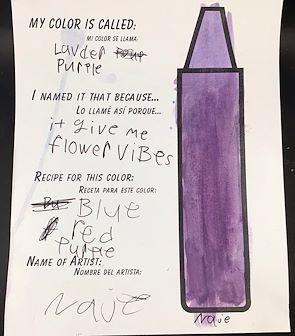 MY COLOR IS CALLED:
MI COLOR SE LLAMA:
Lavder
Purple
I NAMED IT THAT BECAUSE...
LO LLAMÉ ASÍ PORQUE...
it give me
flower vibes
RECIPE FOR THIS COLOR:
RECETA PARA ESTE COLOR:
Blue
red
purple
NAME OF ARTIST:
NOMBRE DEL ARTISTA:
Naje
Naje